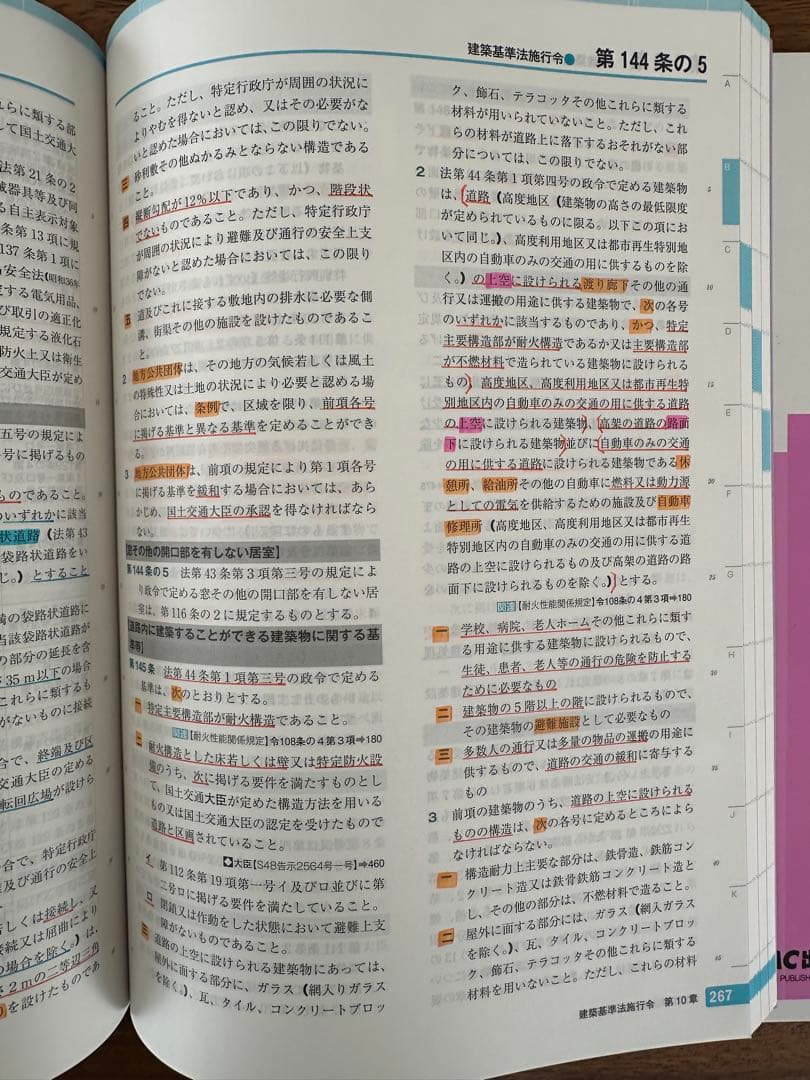 建築基準法施行令● 第144条の5
れらに類する部
して国土交通大
法第21条の2
械器具等及び同
る自主表示対象
条第13項に規
137条第1項に
安全法(昭和36年
する電気用品、
び取引の適正化
規定する液化石
防火上又は衛生
交通大臣が定め
五号の規定によ
号に掲げるもの
ものであること。
のいずれかに該当
状道路(法第43
袋路状道路をい
じ。)とすること
満の袋路状道路に
当該袋路状道路が
の部分の延長を含
35m以下の場合
これらに類するも
がないものに接続
合で、終端及び区
交通大臣の定める
転回広場が設けら
合で、特定行政庁
難及び通行の安全
若しくは接続し、又
接続又は屈曲により
の場合を除く。)は、
2mの二等辺三角
)を設けたものであ
ること。ただし、特定行政庁が周囲の状況に
よりやむを得ないと認め、又はその必要がな
いと認めた場合においては、この限りでない。
三 砂利敷その他ぬかるみとならない構造である
こと。
四 縦断勾配が12%以下であり、かつ、階段状
でないものであること。ただし、特定行政庁
が周囲の状況により避難及び通行の安全上支
障がないと認めた場合においては、この限り
でない。
五 道及びこれに接する敷地内の排水に必要な側
溝、街渠その他の施設を設けたものであるこ
と。
2 地方公共団体は、その地方の気候若しくは風土
の特殊性又は土地の状況により必要と認める場
合においては、条例で、区域を限り、前項各号
に掲げる基準と異なる基準を定めることができ
る。
3 地方公共団体は、前項の規定により第1項各号
に掲げる基準を緩和する場合においては、あら
かじめ、国土交通大臣の承認を得なければなら
ない。
【窓その他の開口部を有しない居室】
第144条の5 法第43条第3項第三号の規定によ
り政令で定める窓その他の開口部を有しない居
室は、第116条の2に規定するものとする。
【道路内に建築することができる建築物に関する基
準等】
第145条 法第44条第1項第三号の政令で定める
基準は、次のとおりとする。
一 特定主要構造部が耐火構造であること。
関連【耐火性能関係規定】令108条の4第3項⇒180
二 耐火構造とした床若しくは壁又は特定防火設
備のうち、次に掲げる要件を満たすものとし
て、国土交通大臣が定めた構造方法を用いる
もの又は国土交通大臣の認定を受けたもので
道路と区画されていること。
◆大臣【S48告示2564号一号】⇒460
イ 第112条第19項第一号イ及びロ並びに第
二号ロに掲げる要件を満たしていること。
ロ 閉鎖又は作動をした状態において避難上支
障がないものであること。
三 道路の上空に設けられる建築物にあっては、
屋外に面する部分に、ガラス(網入りガラス
を除く。)、瓦、タイル、コンクリートブロッ
ク、飾石、テラコッタその他これらに類する
材料が用いられていないこと。ただし、これ
らの材料が道路上に落下するおそれがない部
分については、この限りでない。
2 法第44条第1項第四号の政令で定める建築物
は、道路(高度地区(建築物の高さの最低限度
が定められているものに限る。以下この項にお
いて同じ。)、高度利用地区又は都市再生特別地
区内の自動車のみの交通の用に供するものを除
く。)の上空に設けられる渡り廊下その他の通
行又は運搬の用途に供する建築物で、次の各号
のいずれかに該当するものであり、かつ、特定
主要構造部が耐火構造であるか又は主要構造部
が不燃材料で造られている建築物に設けられる
もの、高度地区、高度利用地区又は都市再生特
別地区内の自動車のみの交通の用に供する道路
の上空に設けられる建築物、高架の道路の路面
下に設けられる建築物並びに自動車のみの交通
の用に供する道路に設けられる建築物である休
憩所、給油所その他の自動車に燃料又は動力源
としての電気を供給するための施設及び自動車
修理所(高度地区、高度利用地区又は都市再生
特別地区内の自動車のみの交通の用に供する道
路の上空に設けられるもの及び高架の道路の路
面下に設けられるものを除く。)とする。
関連【耐火性能関係規定】令108条の4第3項⇒180
一 学校、病院、老人ホームその他これらに類す
る用途に供する建築物に設けられるもので、
生徒、患者、老人等の通行の危険を防止する
ために必要なもの
二 建築物の5階以上の階に設けられるもので、
その建築物の避難施設として必要なもの
三 多数人の通行又は多量の物品の運搬の用途に
供するもので、道路の交通の緩和に寄与する
もの
3 前項の建築物のうち、道路の上空に設けられる
ものの構造は、次の各号に定めるところによら
なければならない。
一 構造耐力上主要な部分は、鉄骨造、鉄筋コン
クリート造又は鉄骨鉄筋コンクリート造と
し、その他の部分は、不燃材料で造ること。
二 屋外に面する部分には、ガラス(網入ガラス
を除く。)、瓦、タイル、コンクリートブロッ
ク、飾石、テラコッタその他これらに類する
材料を用いないこと。ただし、これらの材料
A
B
C
D
E
F
G
H
I
J
K
L
5
10
15
20
25
30
35
40
45
建築基準法施行令 第10章 267
PUBLISH